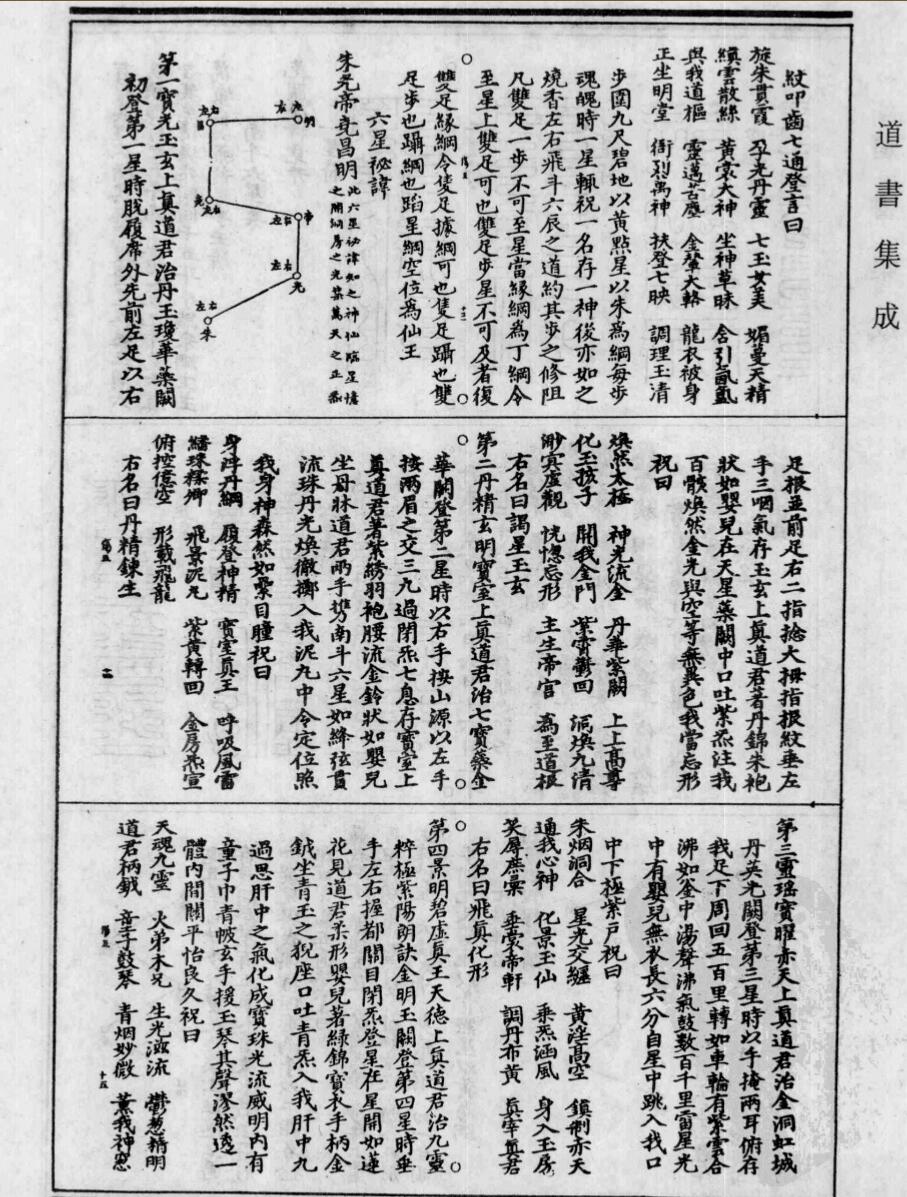 道書集成
紋叩齒七通登言曰
旋朱貫霞 孕光丹靈 七玉女美 媚蔓天精
縝雲散絲 黃裳大神 坐神草昧 含引氤氳
與我道樞 靈邁苦塵 金輦大輅 龍衣被身
正坐明堂 萬神 扶登七映 調理玉清
步圖九尺碧地以黃點星以朱爲綱每步
魂魄時一星輒祝一名存一神後亦如之
燒香左右飛斗六辰之道約其步之修阻
凡雙足一步不可至星當緣綱爲丁綱令
至星上雙足可也雙足步星不可及者復
雙足緣綱令隻足據綱可也隻足躡也雙
足步也躡綱也蹈星綱空位爲仙王
六星祕諱
朱光帝堯昌明 此六星祕諱知之神仙臨星憶
之開洞房之光策萬天之正炁
左右 明
左右 昌
左右 堯
左右 帝
左右 光
左右 朱
第一寶光玉玄上真道君治丹玉瓊華蘂闕
初登第一星時脫履席外先前左足以右
足根並前足右二指捻大拇指根紋垂左
手三咽氣存玉玄上真道君著丹錦朱袍
狀如嬰兒在天星蘂闕中口吐紫炁注我
百骸煥然金光與空等無異色我當忘形
祝曰
煥然太極 神光流金 丹華紫闕 上上高尊
化玉孩子 開我金門 紫霄鬱回 洞煥九清
渺冥虛觀 恍惚忘形 主生帝官 爲至道根
右名曰謁星玉玄
第二丹精玄明寶室上真道君治七寶藥金
華闕登第二星時以右手按山源以左手
按兩眉之交三九過閉炁七息存寶室上
真道君著紫綉羽袍腰流金鈴狀如嬰兒
坐 道君兩手攜南斗六星如絳弦貫
流珠丹光煥徹擲入我泥丸中令定位照
我身神森然如縈目瞳祝曰
身泮丹綱 履登神精 寶室真王 呼吸風雷
蟠珠 飛景泥丸 紫黃轉回 金房炁宣
俯控億空 形載飛龍
右名曰丹精鍊生
二
第三靈瑤寶曜赤天上真道君治金洞虹城
丹英光闕登第三星時以手掩兩耳俯存
我足下周回五百里轉如車輪有紫雲合
沸如釜中湯聲沸氣鼓數百千里雷星光
中有嬰兒無衣長六分自星中跳入我口
中下極紫戶祝曰
朱烟洞合 星光交纏 黃淫高空 鎮制赤天
通我心神 化景玉仙 乘炁涵風 身入玉房
笑 垂裳帝軒 調丹布黃 真宰真君
右名曰飛真化形
第四景明碧虛真王天德上真道君治九靈
粹極紫陽朗訣金明玉闕登第四星時垂
手左右握都關目閉炁登星在星開如蓮
花見道君柔形嬰兒著綠錦寶衣手柄金
鉞坐青玉之猊座口吐青炁入我肝中九
過思肝中之氣化成寶珠光流威明內有
童子巾青帔玄手援玉琴其聲漻然遶一
體內間關平怡良久祝曰
天魂九靈 火弟木兄 生光滋流 鬱葱精明
道君柄鉞 童子鼓琴 青烟妙微 薰我神